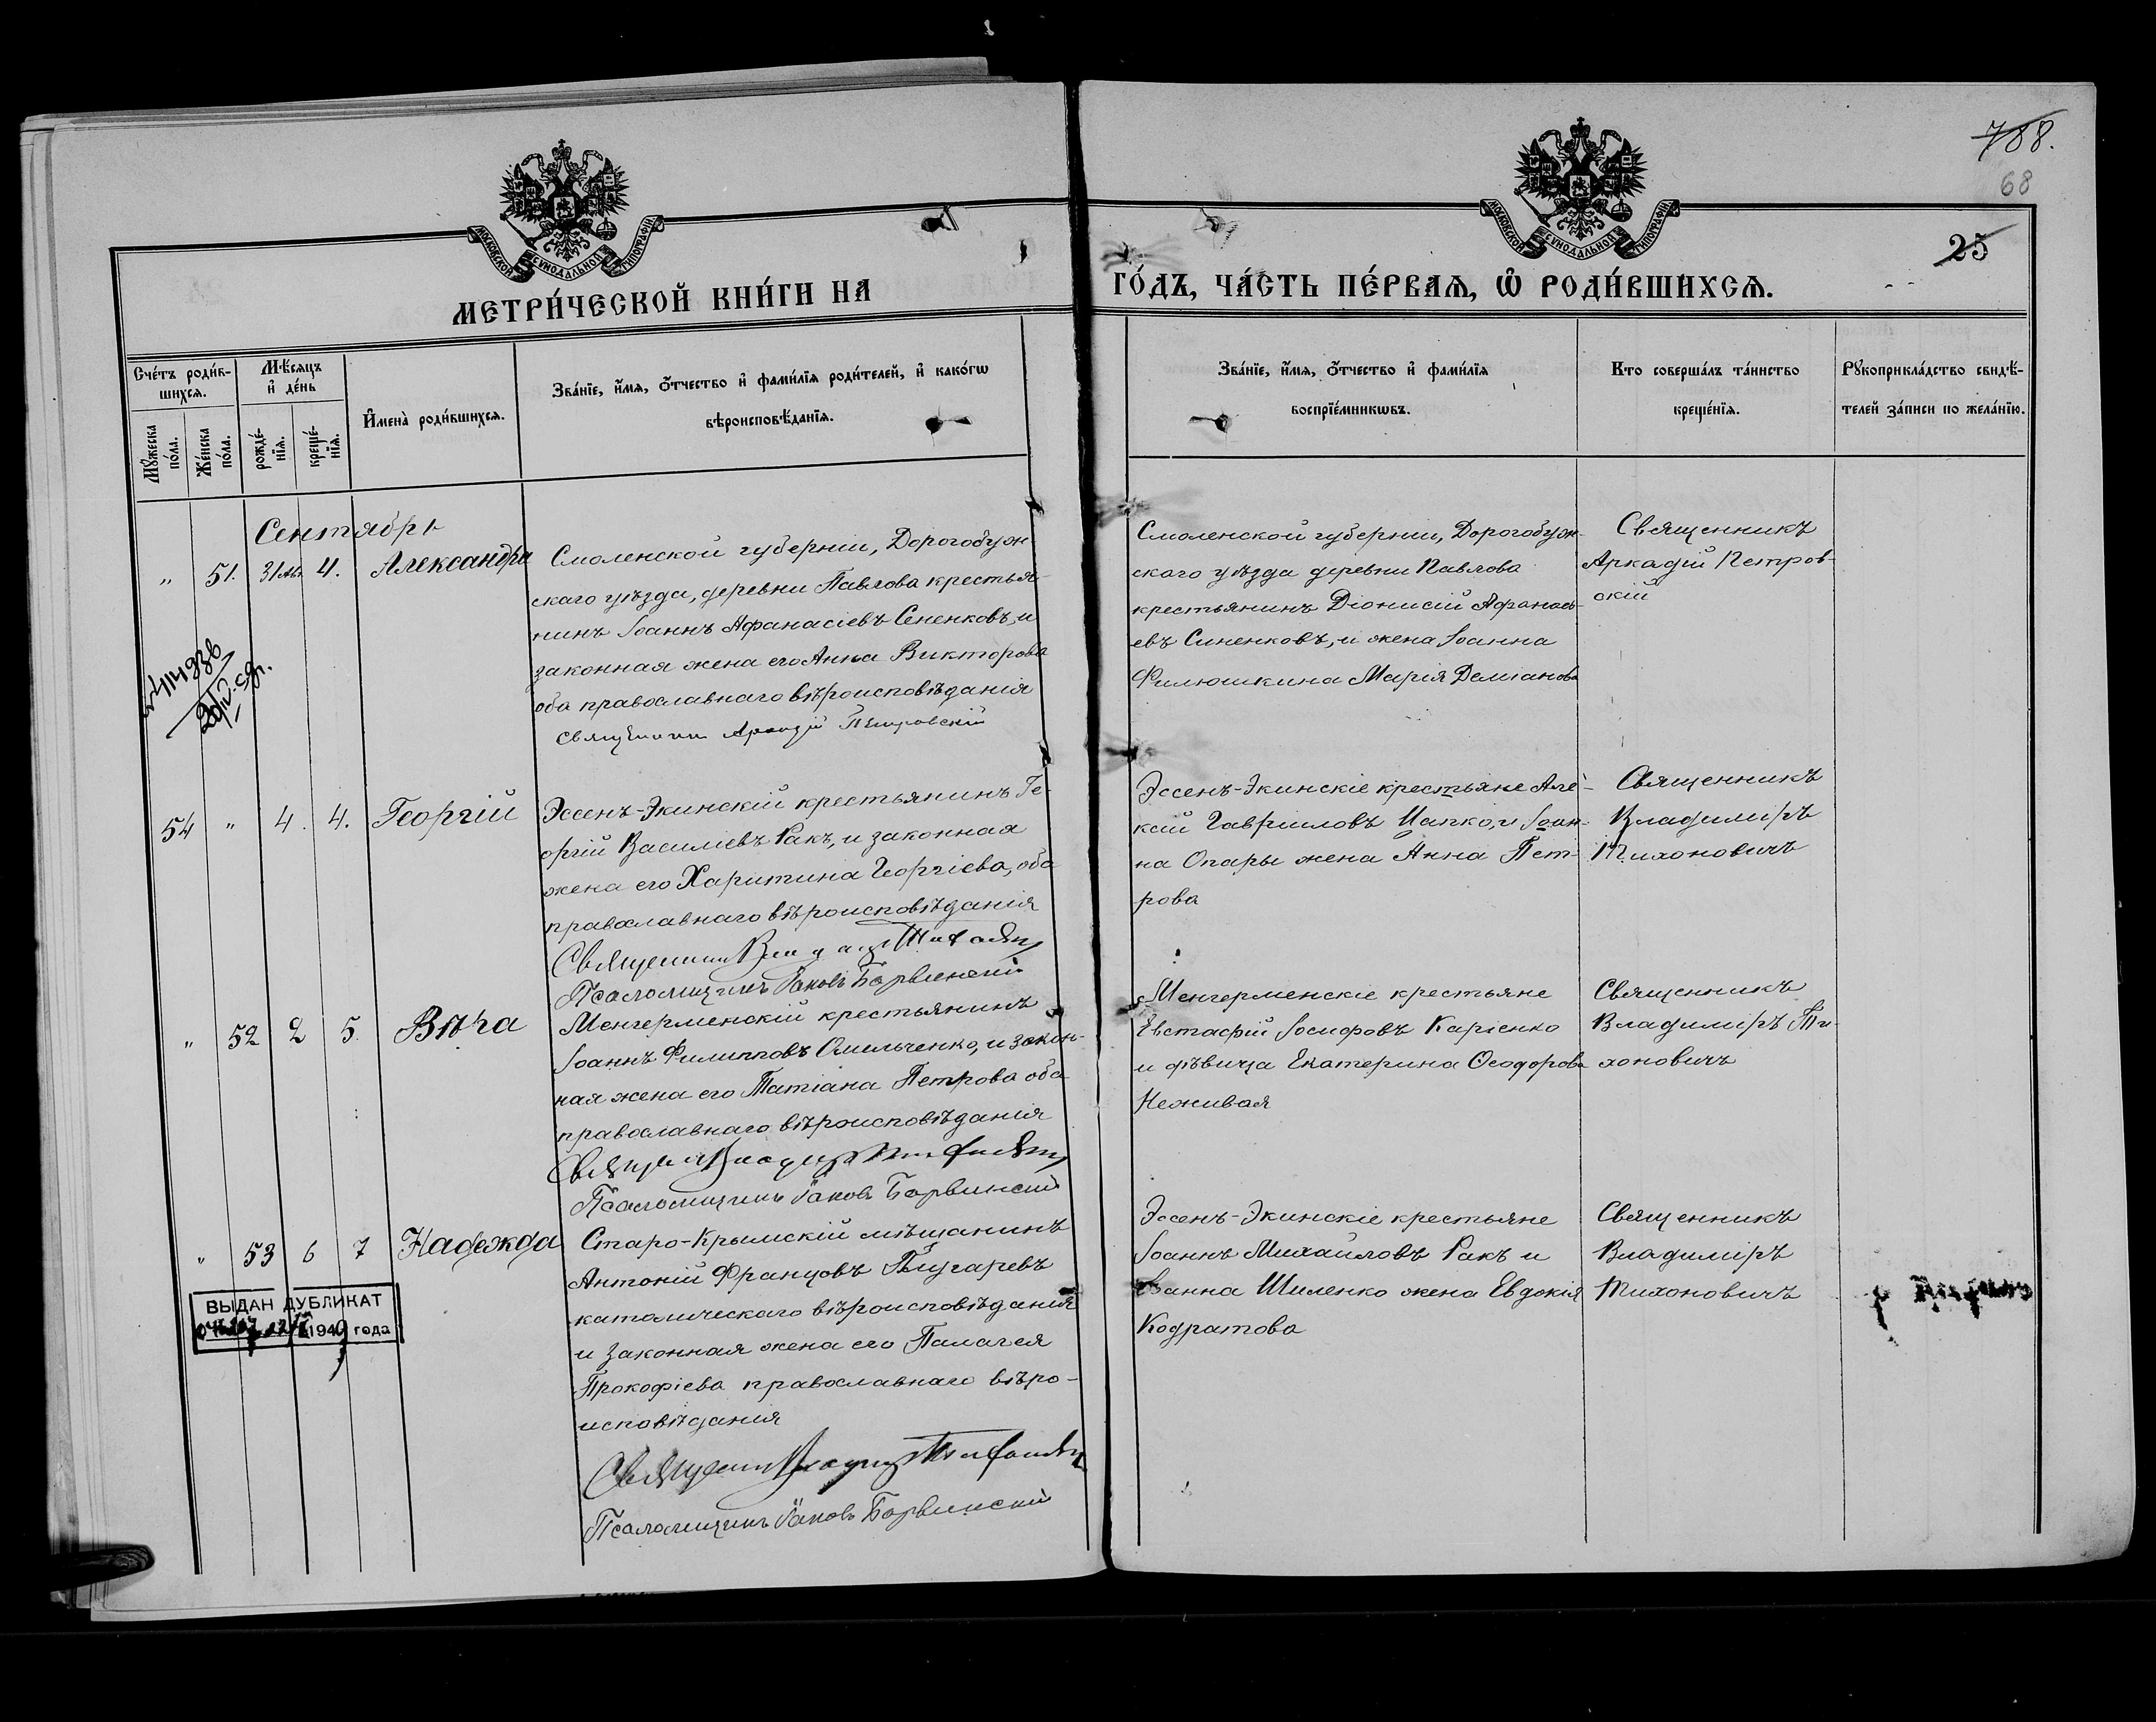 788.
68
25
МОСКОВСКОЙ СѴНОДАЛЬНОЙ ТИПОГРАФИИ
МОСКОВСКОЙ СѴНОДАЛЬНОЙ ТИПОГРАФИИ
МЕТРИ́ЧЕСКОЙ КНИ́ГИ НА
ГО́ДЪ, ЧА́СТЬ ПЕ́РВАѦ, Ѡ РОДИ́ВШИХСѦ.
Счéтъ роди́в-
шихсѧ.
Мꙋ́жеска
по́ла.
Же́нска
по́ла.
Мѣ́сѧцъ
и҆ де́нь
рожде́-
нїѧ.
креще́-
нїѧ.
И҆мена̀ роди́вшихсѧ.
Зва́нїе, и҆́мѧ, ѻ҆́тчество и҆ фами́лїѧ роди́телей, и҆ како́гѡ
вѣроисповѣ́данїѧ.
Зва́нїе, и҆́мѧ, ѻ҆́тчество и҆ фами́лїѧ
воспрїе́мникѡвъ.
Кто соверша́лъ та́инство
креще́нїѧ.
Рꙋкоприкла́дство свидѣ́-
телей за́писи по жела́нїю.
Сентябрь
„ 51. 31 Авг. 4. Александра
Смоленской губерніи, Дорогобуж
скаго уѣзда, деревни Павлова крестья-
нинъ Іоаннъ Афанасіевъ Сененковъ, и
законная жена его Анна Викторова
оба православнаго вѣроисповѣданія
Священникъ Аркадій Петровскій
Смоленской губерніи, Дорогобуж-
скаго уѣзда деревни Павлова
крестьянинъ Діонисій Афанась-
евъ Синенковъ, и жена Іоанна
Филюшкина Марія Деміанова
Священникъ
Аркадій Петров-
скій
54 „ 4. 4. Георгій
Эссенъ-Экинскій крестьянинъ Ге-
оргій Василіевъ Ракъ, и законная
жена его Харитина Георгіева, оба
православнаго вѣроисповѣданія
Священникъ
Псаломщикъ Іаковъ Барвинскій
Эссенъ-Экинскіе крестьяне Але-
ксій Гавриловъ Цапко, и Іоан-
на Опары жена Анна Пет-
рова
Священникъ
Владиміръ
Тихоновичъ
„ 52 2 5. Вѣра
Менгерменскій крестьянинъ
Іоаннъ Филипповъ Омельченко, и закон-
ная жена его Татіана Петрова оба
православнаго вѣроисповѣданія
Псаломщикъ Іаковъ Барвинскій
Менгерменскіе крестьяне
Евстафій Іосифовъ Карпенко
и дѣвица Екатерина Ѳеодорова
Неживая
Священникъ
Владиміръ Ти-
хоновичъ
„ 53 6 7 Надежда
Старо-Крымскій мѣщанинъ
Антоній Францовъ
католическаго вѣроисповѣданія
и законная жена его Палагея
Прокофіева православнаго вѣро-
исповѣданія
Псаломщикъ Іаковъ Барвинскій
Эссенъ-Экинскіе крестьяне
Іоаннъ Михайловъ Ракъ и
Іоанна Шиленко жена Евдокія
Кодратова
Священникъ
Владиміръ
Тихоновичъ
ВЫДАН ДУБЛИКАТ
1949 года